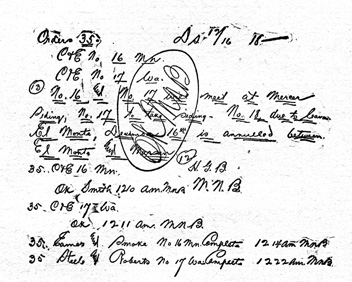 Orders 35. Ds. 12/16
C&E No. 16 Mn.
C&E No. 17 Wa.
(13) No. 16 & No. 17 will meet at Mercer
Siding, No. 17 to take siding. No. 16 due to leave
El Monte, Dec. 16th is annulled between
El Monte & Mercer. (12) H.G.B.
35. C&E 16 Mn.
OK Smith 1210 am. MNB
35. C&E 17 Wa.
OK 1211 am. MNB.
35. Eames & Smoke No 16 Mn. Complete 1214 am MNB
35 Steele & Roberts No 17 Wa. Complete 1222 am MNB.